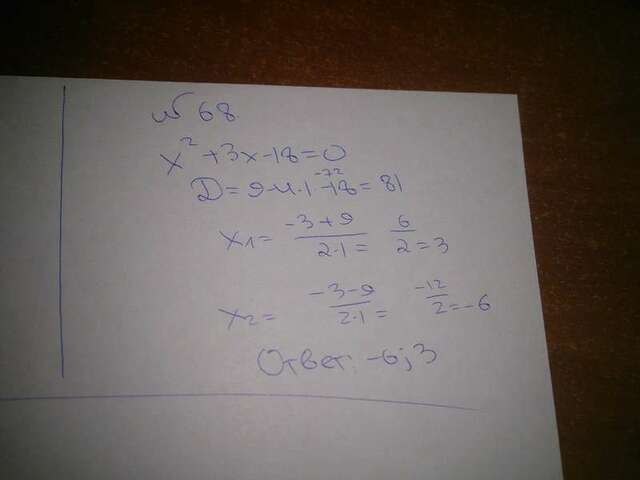 № 68.
x² + 3x - 18 = 0
-72
D = 9 - 4 · 1 · -18 = 81
x1 = -3 + 9 / 2 · 1 = 6 / 2 = 3
x2 = -3 - 9 / 2 · 1 = -12 / 2 = -6
Ответ: -6; 3